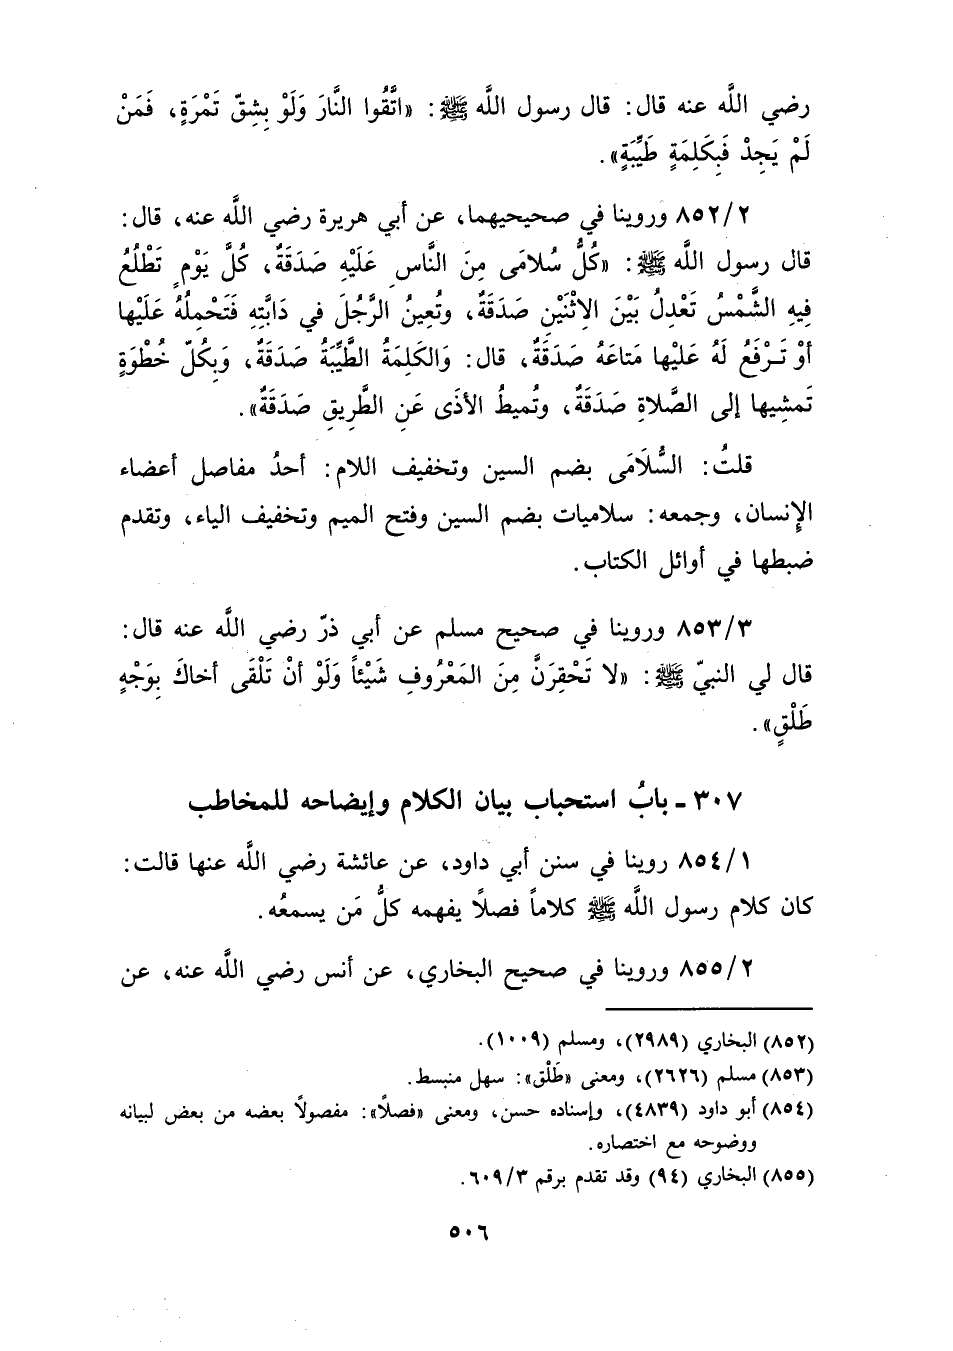 رضي اللَّه عنه قال: قال رسول اللَّه ﷺ: «اتَّقُوا النَّارَ وَلَوْ بِشِقّ تَمْرَةٍ، فَمَنْ
لَمْ يَجِدْ فَبِكَلِمَةٍ طَيِّبَةٍ».
٨٥٢/٢ وروينا في صحيحيهما، عن أبي هريرة رضي اللَّه عنه، قال:
قال رسول اللَّه ﷺ: «كُلُّ سُلامَى مِنَ النَّاسِ عَلَيْهِ صَدَقَةٌ، كُلَّ يَوْمٍ تَطْلُعُ
فِيهِ الشَّمْسُ تَعْدِلُ بَيْنَ الاِثْنَيْنِ صَدَقَةٌ، وتُعِينُ الرَّجُلَ في دَابَّتِهِ فَتَحْمِلُهُ عَلَيْها
أوْ تَرْفَعُ لَهُ عَلَيْها مَتاعَهُ صَدَقَةٌ، قال: وَالكَلِمَةُ الطَّيِّبَةُ صَدَقَةٌ، وَبِكُلّ خُطْوَةٍ
تَمشِيها إلى الصَّلاةِ صَدَقَةٌ، وتُميطُ الأذَى عَنِ الطَّرِيقِ صَدَقَةٌ».
قلتُ: السُّلَامَى بضم السين وتخفيف اللام: أحدُ مفاصل أعضاء
الإِنسان، وجمعه: سلاميات بضم السين وفتح الميم وتخفيف الياء، وتقدم
ضبطها في أوائل الكتاب.
٨٥٣/٣ وروينا في صحيح مسلم عن أبي ذرّ رضي اللَّه عنه قال:
قال لي النبيّ ﷺ: «لا تَحْقِرَنَّ مِنَ المَعْرُوفِ شَيْئاً وَلَوْ أنْ تَلْقَى أخاكَ بِوَجْهٍ
طَلْقٍ».
٣٠٧ - بابُ استحباب بيان الكلام وإيضاحه للمخاطب
٨٥٤/١ روينا في سنن أبي داود، عن عائشة رضي اللَّه عنها قالت:
كان كلام رسول اللَّه ﷺ كلاماً فصلًا يفهمه كلُّ مَن يسمعُه.
٨٥٥/٢ وروينا في صحيح البخاري، عن أنس رضي اللَّه عنه، عن
(٨٥٢) البخاري (٢٩٨٩)، ومسلم (١٠٠٩).
(٨٥٣) مسلم (٢٦٢٦)، ومعنى «طَلْق»: سهل منبسط.
(٨٥٤) أبو داود (٤٨٣٩)، وإسناده حسن، ومعنى «فصلًا»: مفصولًا بعضه من بعض لبيانه
ووضوحه مع اختصاره.
(٨٥٥) البخاري (٩٤) وقد تقدم برقم ٦٠٩/٣.
٥٠٦